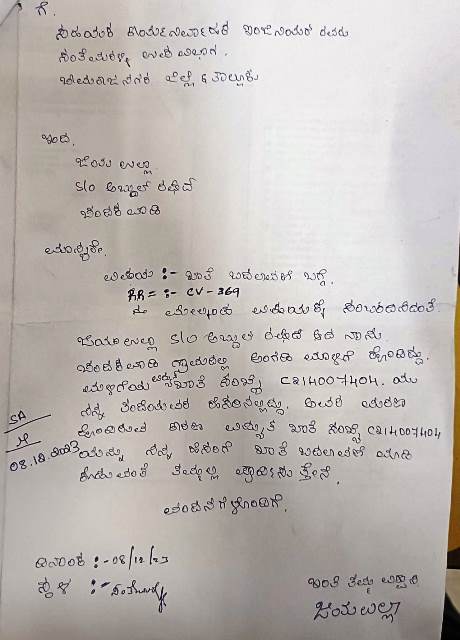 ಗೆ.
ಸಹಾಯಕ ಕಾರ್ಯನಿರ್ವಾಹಕ ಇಂಜಿನಿಯರ್ ರವರು
ಸಂತೇಮರಳ್ಳಿ ಉಪ ವಿಭಾಗ.
ಚಾಮರಾಜನಗರ ಜಿಲ್ಲೆ & ತಾಲ್ಲೂಕು
ಇಂದ.
ಜಿಯಾ ಉಲ್ಲಾ
S/o ಅಬ್ದುಲ್ ರಷೀದ್
ಮಾನ್ಯರೇ.
ವಿಷಯ :- ಖಾತೆ ಬದಲಾವಣೆ ಬಗ್ಗೆ.
RR = :- CV-369
ಈ ಮೇಲ್ಕಂಡ ವಿಷಯಕ್ಕೆ ಸಂಬಂಧಿಸಿದಂತೆ.
ಜಿಯಾವುಲ್ಲಾ S/o ಅಬ್ದುಲ್ ರಷೀದ್ ಆದ ನಾನು
ಗ್ರಾಮದಲ್ಲಿ ಅಂಗಡಿ ಮಳಿಗೆ ಹೊಂದಿದ್ದು.
ಮಳಿಗೆಯ ವಿದ್ಯುತ್ ಖಾತೆ ಸಂಖ್ಯೆ C214007404. ಯು
ನನ್ನ ತಂದೆಯವರ ಹೆಸರಿನಲ್ಲಿದ್ದು. ಅವರ ಮರಣ
ಹೊಂದಿರುವ ಕಾರಣ ವಿದ್ಯುತ್ ಖಾತೆ ಸಂಖ್ಯೆ C214007404
ಯನ್ನು ನನ್ನ ಹೆಸರಿಗೆ ಖಾತೆ ಬದಲಾವಣೆ ಮಾಡಿ
ಕೊಡುವಂತೆ ತಮ್ಮಲ್ಲಿ ಪ್ರಾರ್ಥಿಸುತ್ತೇನೆ.
ವಂದನೆಗಳೊಂದಿಗೆ.
SA
08.12.2023
ದಿನಾಂಕ :- 08/12/23
ಸ್ಥಳ :-
ಇಂತಿ ತಮ್ಮ ವಿಶ್ವಾಸಿ
ಜಿಯಾವುಲ್ಲಾ